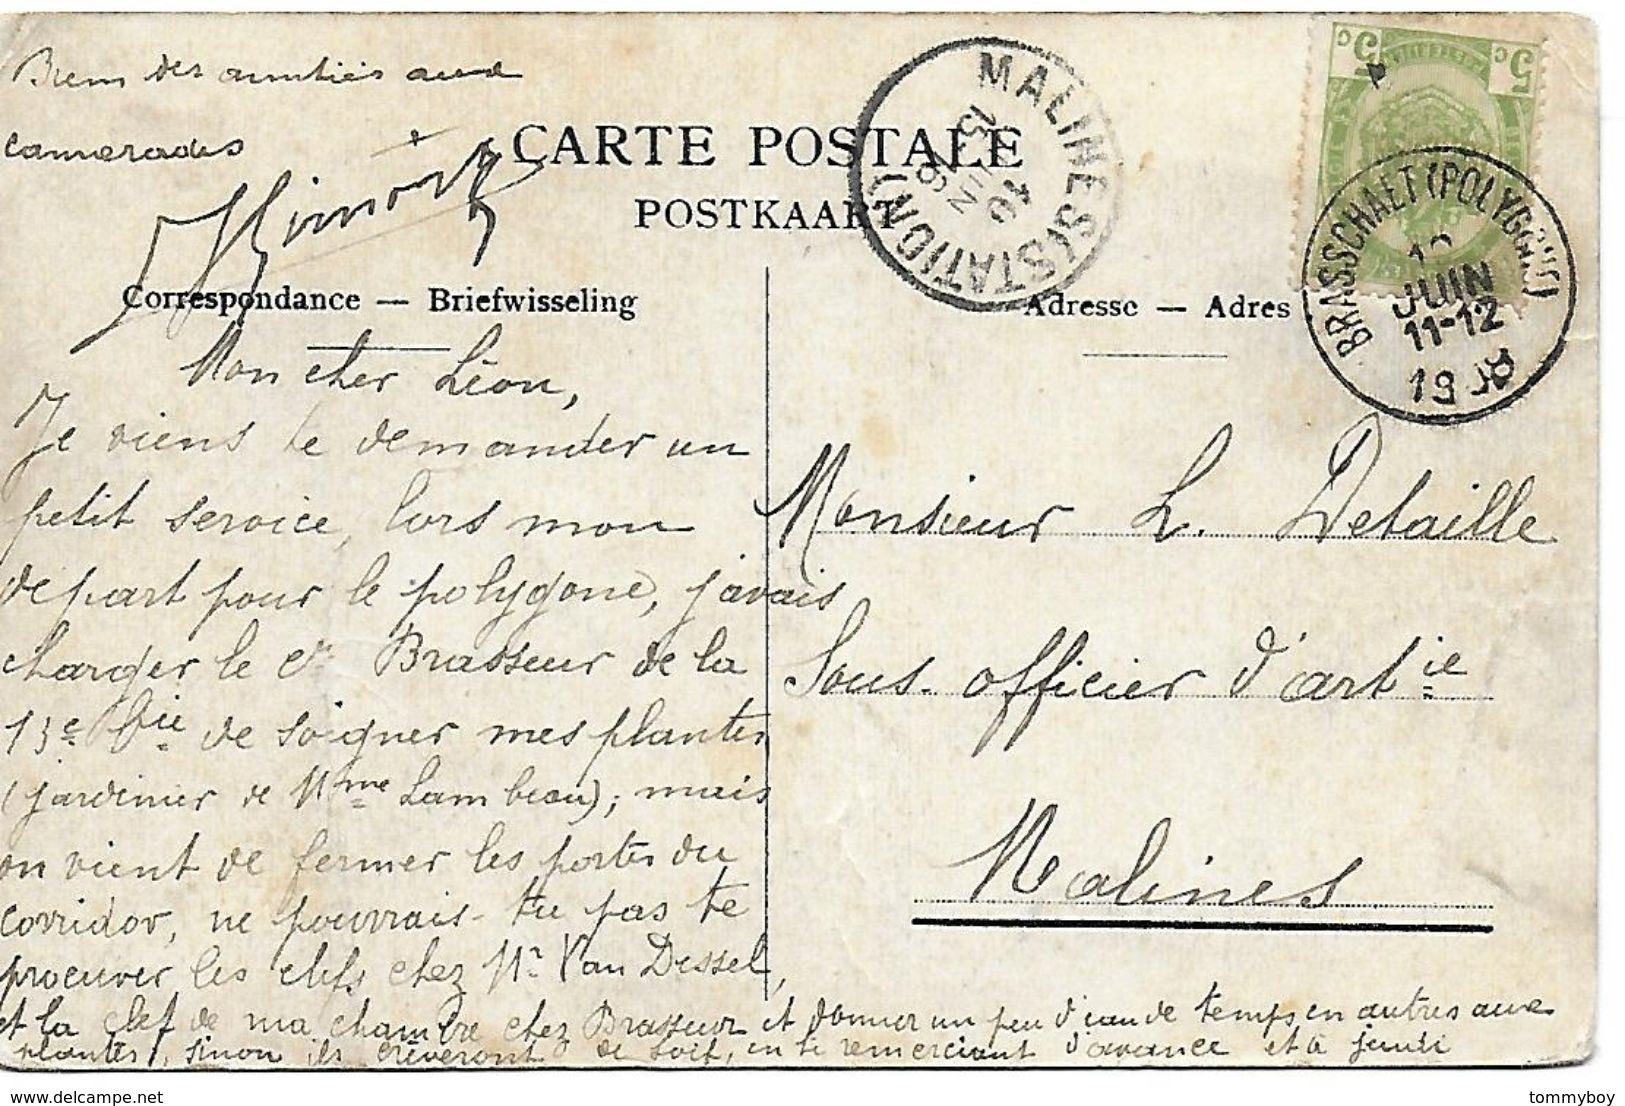 Bien des amitiés aux
camerades
CARTE POSTALE
POSTKAART
Correspondance — Briefwisseling
Adresse — Adres
5 c
c 5
MALINES (STATION)
15
JUIN
BRASSCHAET (POLYGONE)
JUIN
11-12
1908
Mon cher Léon,
Je viens te demander un
petit service, lors mon
depart pour le polygone, j'avais
charger le Cr Brasseur de la
13e Bie de soigner mes plantes
(jardinier de Mme Lambeau); mais
on vient de fermer les portes du
corridor, ne pourrais-tu pas te
procurer les clefs chez Mr Van Dessel,
et la clef de ma chambre chez Brasseur et donner un peu d'eau de temps en autres aux
plantes, sinon ils crèveront de soif, en te remerciant d'avance et à jeudi
Monsieur L. Detaille
Sous-officier d'artie
Malines
tommyboy